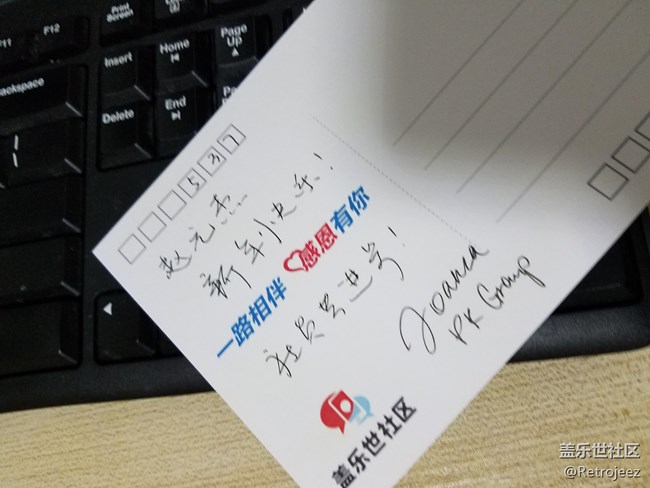 Print
Screen
F11
F12
Insert
Home
Page
Up
Backspace
Delete
End
537
赵元杰
新年快乐!
一路相伴 感恩有你
Joanca
PK Group
盖乐世社区
盖乐世社区
@Retrojeez